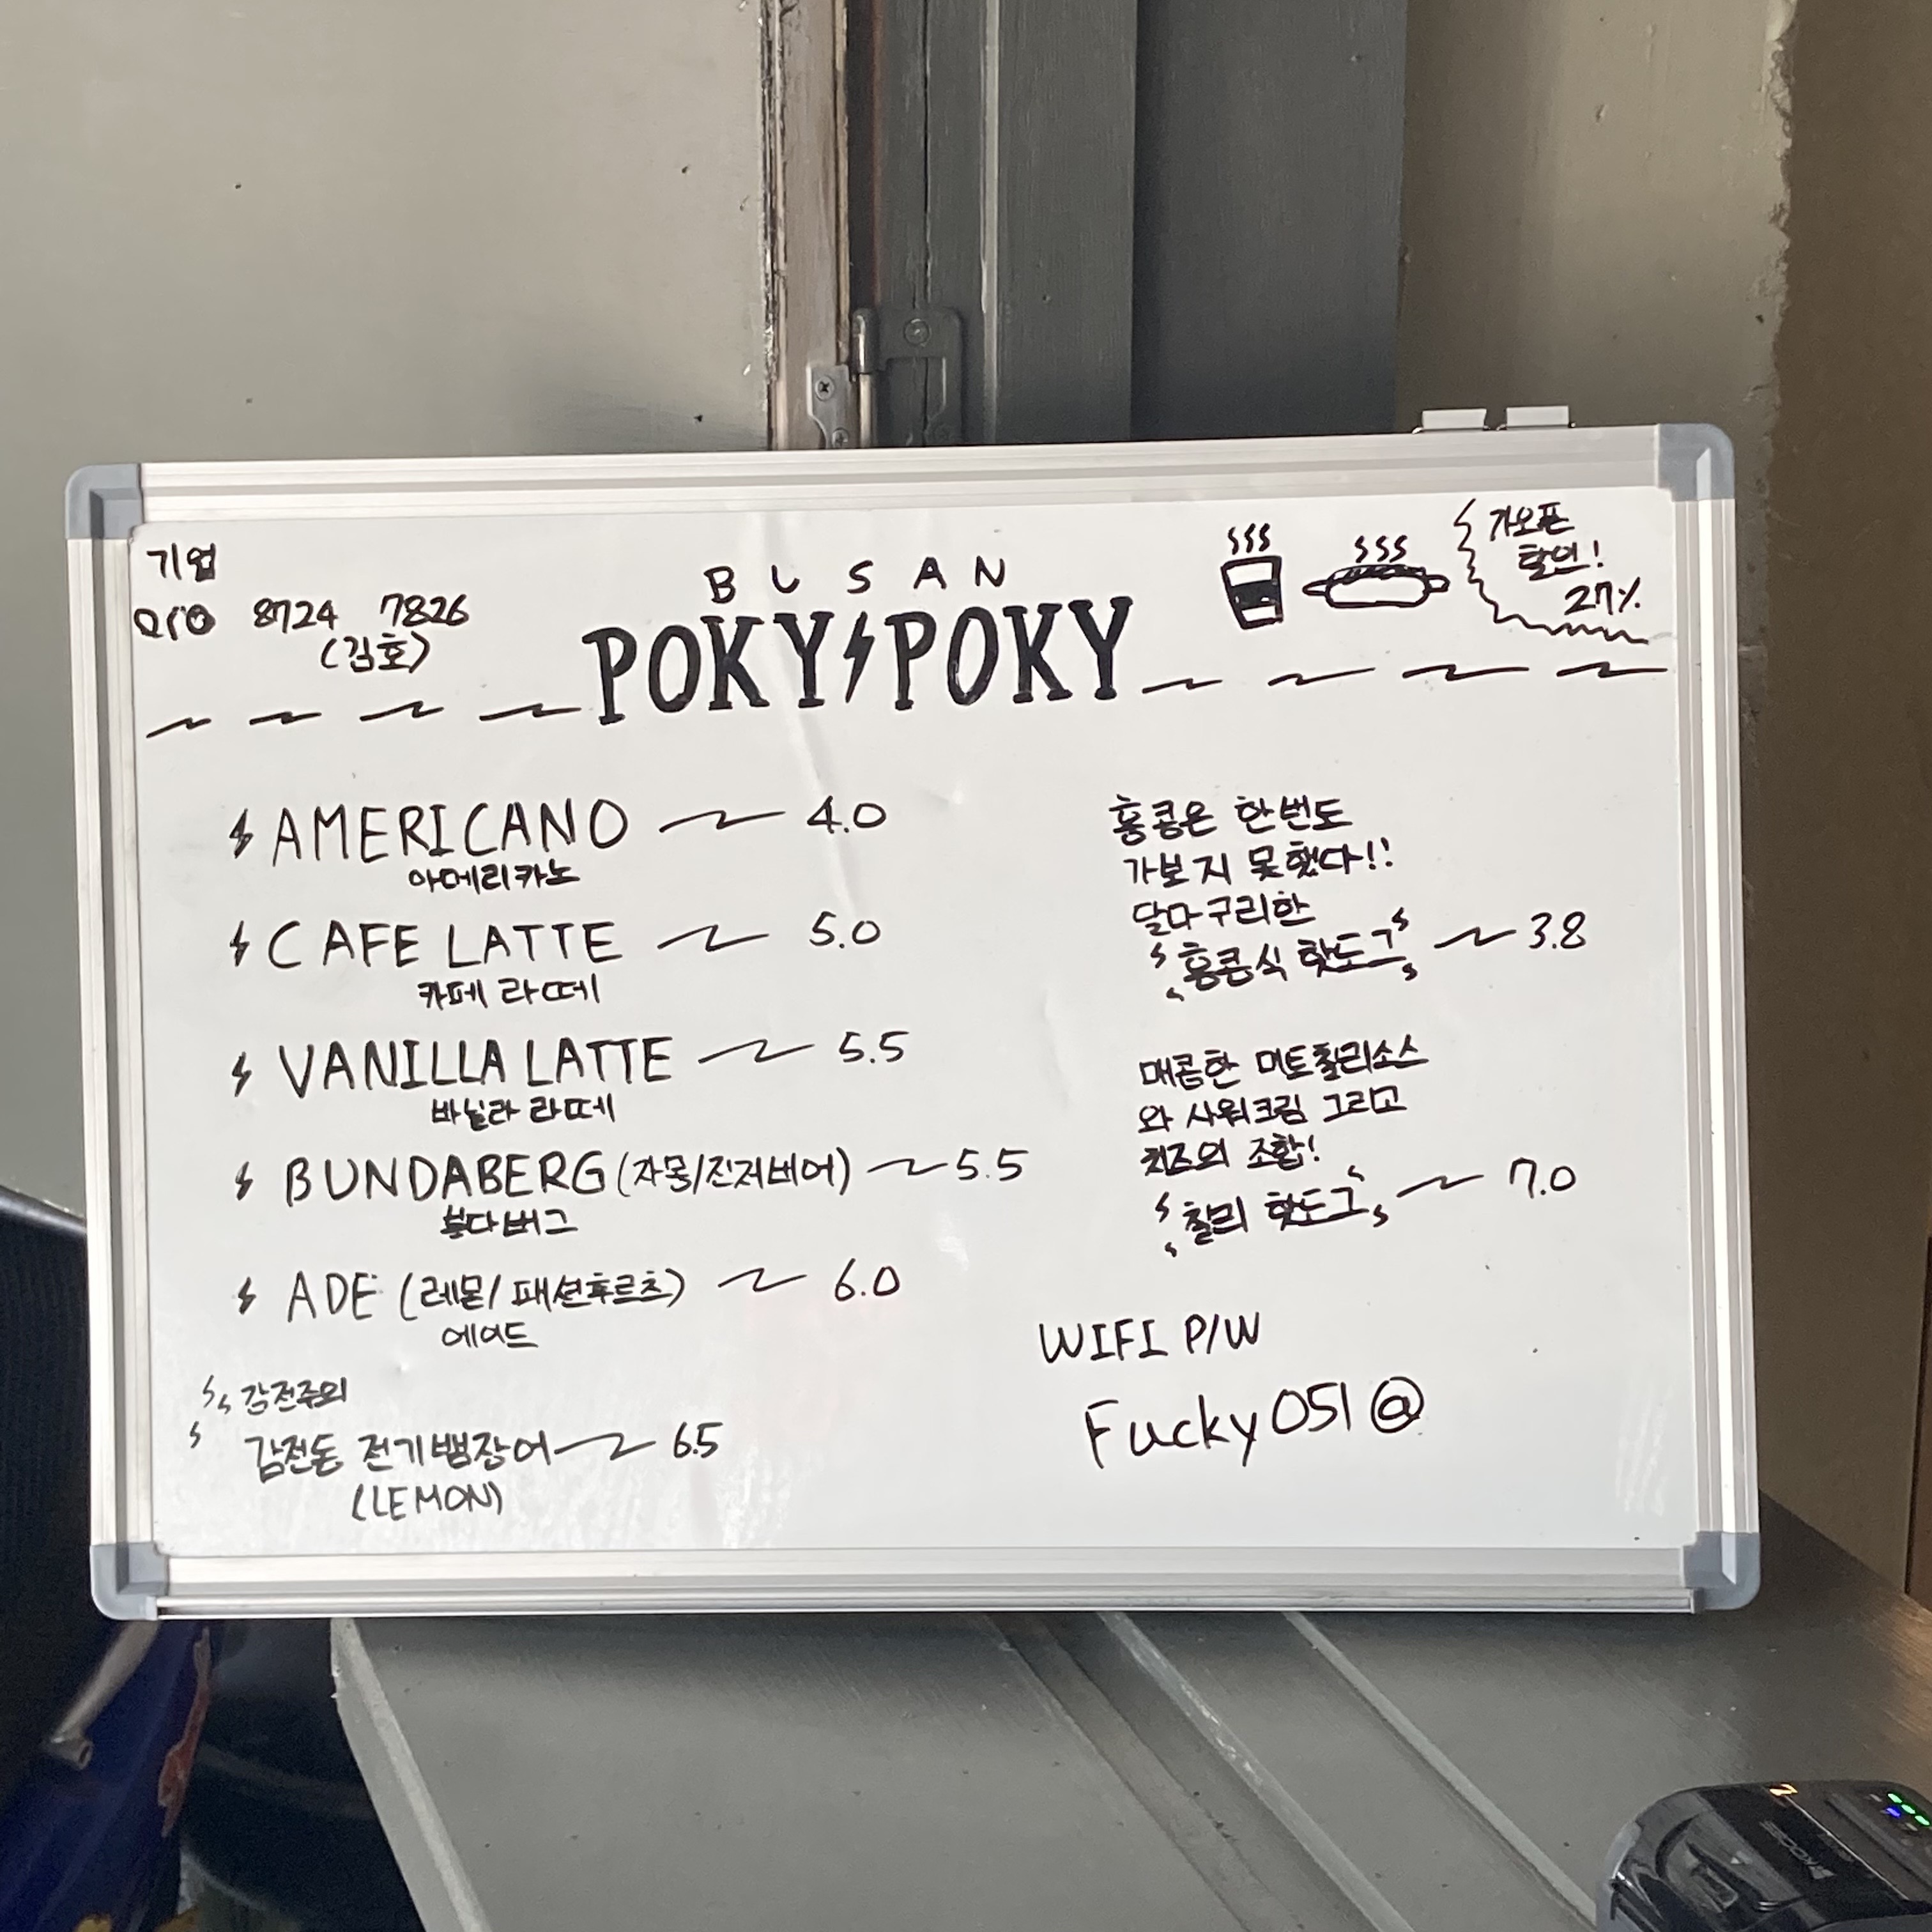 기업
010 8724 7826
(김호)
BUSAN
POKY POKY
가오픈
할인!
27%
AMERICANO 4.0
아메리카노
CAFE LATTE 5.0
카페 라떼
VANILLA LATTE 5.5
바닐라 라떼
BUNDABERG (자몽/진저비어) 5.5
분다버그
ADE (레몬/패션후르츠) 6.0
에이드
감전주의
감전된 전기뱀장어 6.5
(LEMON)
홍콩은 한번도
가보지 못했다!!
달마구리한
홍콩식 핫도그 3.8
매콤한 미트칠리소스
와 사워크림 그리고
치즈의 조합!
칠리 핫도그 7.0
WIFI P/W
Fucky051@